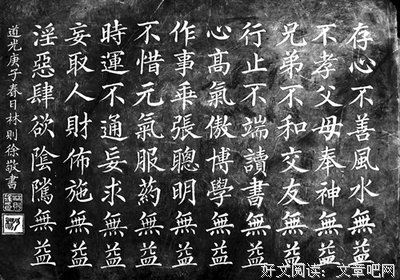 存心不善風水無益
不孝父母奉神無益
兄弟不和交友無益
行止不端讀書無益
心髙氣傲博學無益
作事乖張聰明無益
不惜元氣服葯無益
時運不通妄求無益
妄取人財佈施無益
淫惡肆欲陰隲無益
道光庚子春日林則徐敬書
好文阅读：文章吧网